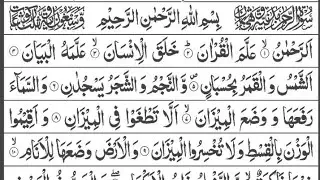 بِسْمِ اللّٰهِ الرَّحْمٰنِ الرَّحِيْمِ
اَلرَّحْمٰنُ ۙ﴿۱﴾ عَلَّمَ الْقُرْاٰنَ ؕ﴿۲﴾ خَلَقَ الْاِنْسَانَ ۙ﴿۳﴾ عَلَّمَهُ الْبَيَانَ ﴿۴﴾
اَلشَّمْسُ وَ الْقَمَرُ بِحُسْبَانٍ ۪﴿۵﴾ وَّ النَّجْمُ وَ الشَّجَرُ يَسْجُدٰنِ ﴿۶﴾ وَ السَّمَآءَ
رَفَعَهَا وَ وَضَعَ الْمِيْزَانَ ۙ﴿۷﴾ اَلَّا تَطْغَوْا فِي الْمِيْزَانِ ﴿۸﴾ وَ اَقِيْمُوا
الْوَزْنَ بِالْقِسْطِ وَ لَا تُخْسِرُوا الْمِيْزَانَ ﴿۹﴾ وَ الْاَرْضَ وَضَعَهَا لِلْاَنَامِ ۙ﴿۱۰﴾